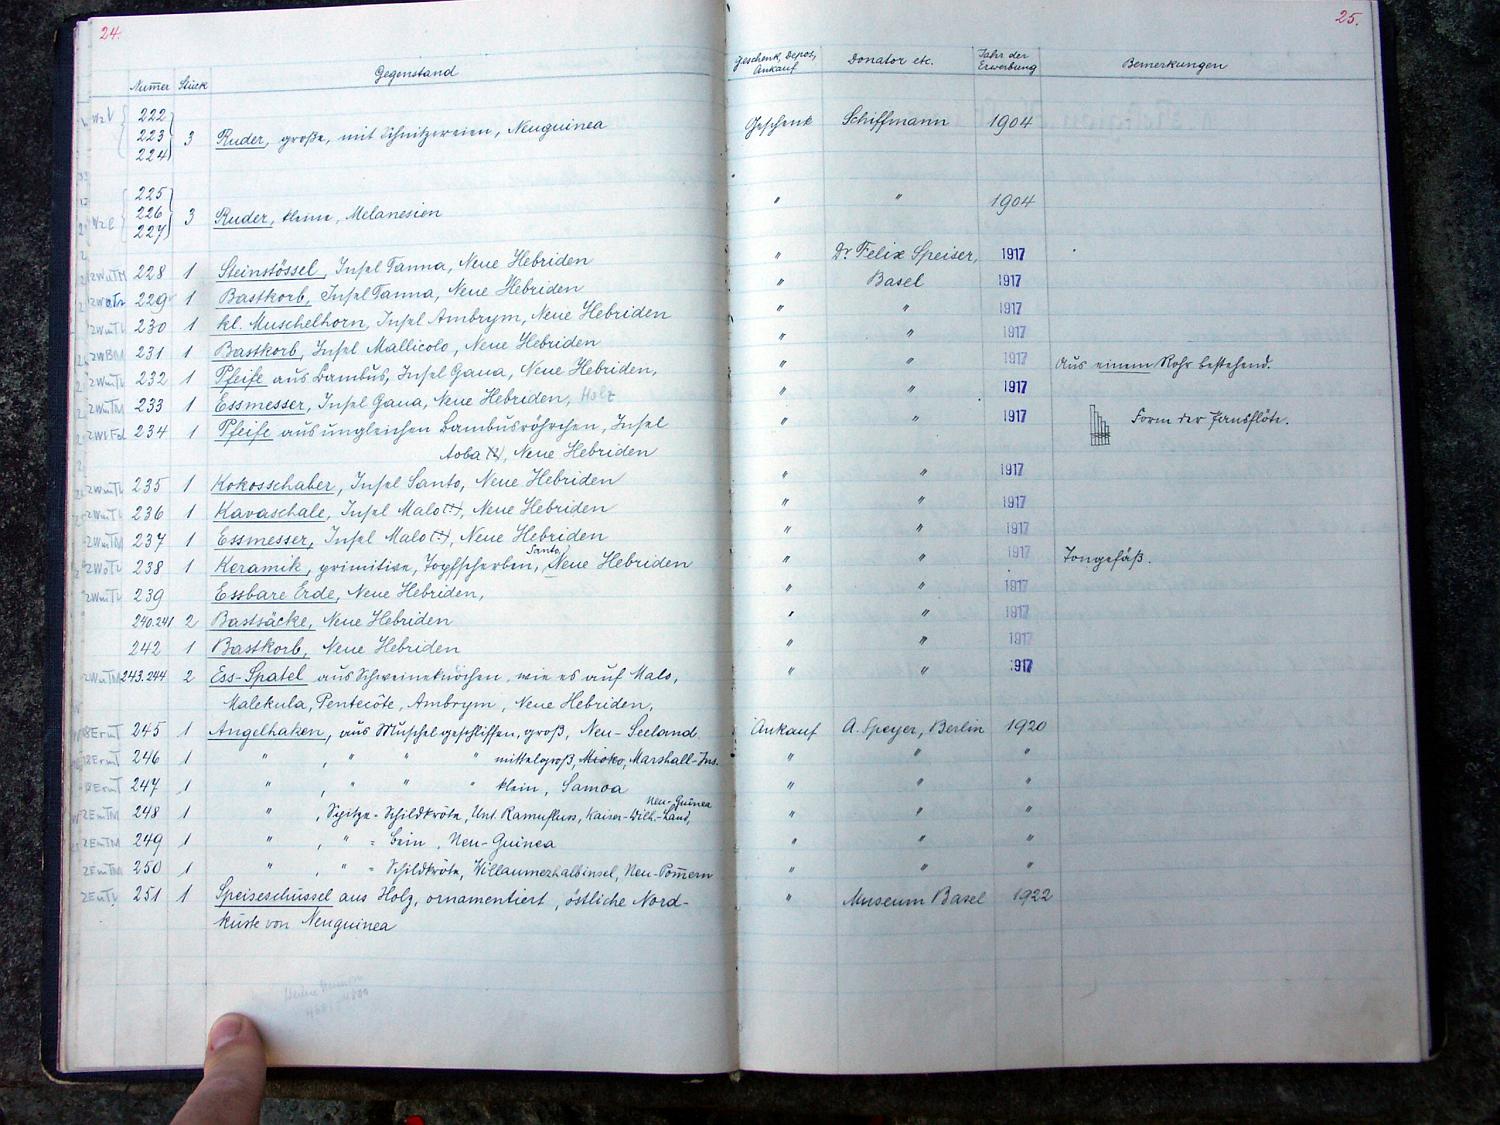 24.
25.
Numer Stück Gegenstand Geschenk, Depos, Ankauf Donator etc. Jahr der Erwerbung Bemerkungen
222
223 3 Ruder, große, mit Schnitzereien, Neuguinea Geschenk Schiffmann 1904
224
225
226 3 Ruder, kleine, Melanesien " " 1904
227
228 1 Steinstössel, Insel Tanna, Neue Hebriden " Dr Felix Speiser, 1917
229 1 Bastkorb, Insel Tanna, Neue Hebriden " Basel 1917
230 1 kl. Muschelhorn, Insel Ambrym, Neue Hebriden " " 1917
231 1 Bastkorb, Insel Mallicolo, Neue Hebriden " " 1917
232 1 Pfeife aus Bambus, Insel Gaua, Neue Hebriden, " " 1917 Aus einem Rohr bestehend.
233 1 Essmesser, Insel Gaua, Neue Hebriden, Holz " " 1917
234 1 Pfeife aus ungleichen Bambusröhrchen, Insel " " 1917 Form der Panflöte.
Aoba, Neue Hebriden
235 1 Kokosschaber, Insel Santo, Neue Hebriden " " 1917
236 1 Kavaschale, Insel Malo, Neue Hebriden " " 1917
237 1 Essmesser, Insel Malo, Neue Hebriden " " 1917
238 1 Keramik, primitive, Topfscherben, Santo, Neue Hebriden " " 1917 Tongefäß.
239 Essbare Erde, Neue Hebriden, " " 1917
240.241 2 Bastsäcke, Neue Hebriden " " 1917
242 1 Bastkorb, Neue Hebriden " " 1917
243.244 2 Ess-Spatel aus Schweineknochen, wie es auf Malo, " " 1917
Malekula, Pentecôte, Ambrym, Neue Hebriden,
245 1 Angelhaken, aus Muschel geschliffen, groß, Neu-Seeland. Ankauf A. Speyer, Berlin 1920
246 1 " , " " " mittelgroß, Mioko, Marshall-Ins. " " "
247 1 " , " " " klein, Samoa " " "
248 1 " , Spitze = Schildkröte, Unt. Ramufluss, Kaiser-Wilh.-Land, Neu-Guinea " " "
249 1 " , " = Bein, Neu-Guinea " " "
250 1 " , " = Schildkröte, Willaumezhalbinsel, Neu-Pommern " " "
251 1 Speiseschüssel aus Holz, ornamentiert, östliche Nord- " Museum Basel 1922
küste von Neuguinea